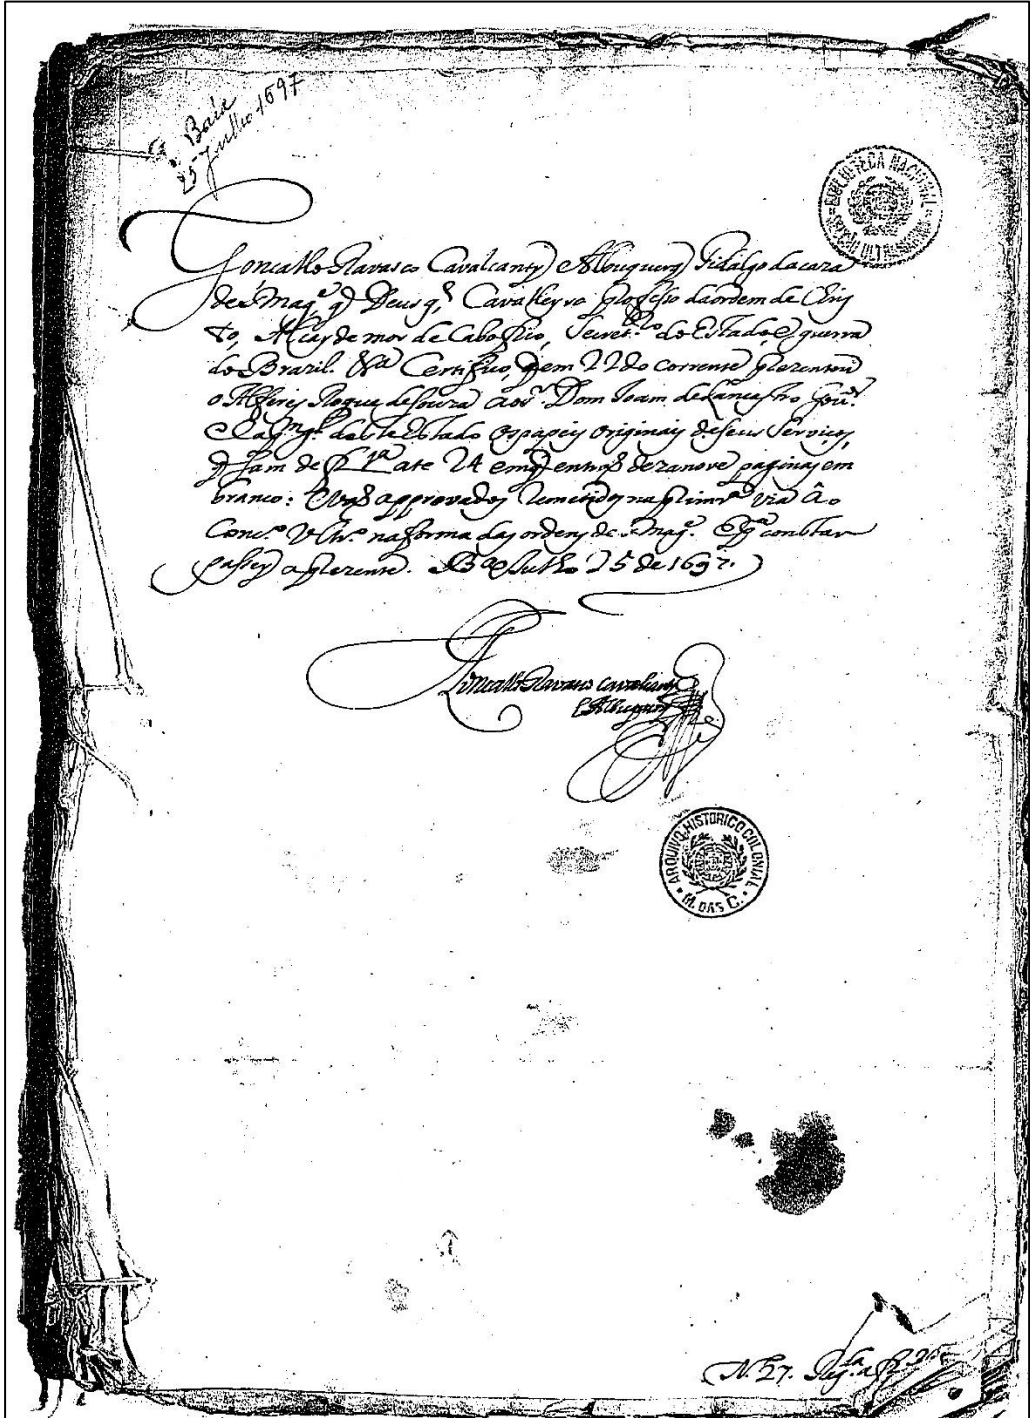 Baía
25 Julho 1697
BIBLIOTECA NACIONAL
Goncallo Ravasco Cavalcanty e Albuquerq Fidalgo da caza
de S. Mag.e q Deus g.de Cavalleyro professo da ordem de Chris
to, Alcayde mor de Cabo frio, Secret.ro do Estado, e guerra
do Brazil. &a Certifico, q em 22 do corrente prezentou
o Alferes Roque de souza ao s.r Dom Joam de Lancastro Gov.or
e Cap.m g.l deste Estado os papeis originais de seus serviços,
q sam de f. 1.a ate 24 em q entraõ dezanove paginas em
branco: e vaõ approvados remetidos na prim.ra via ao
Cons.o Ultr.o na forma das ordens de S. Mag.e E p.a constar
passey a prezente. B.a e Julho 25 de 1697.
Goncallo Ravasco Cavalcanty
e Albuquerq
ARQUIVO HISTORICO COLONIAL
M. DAS C.
N. 27.